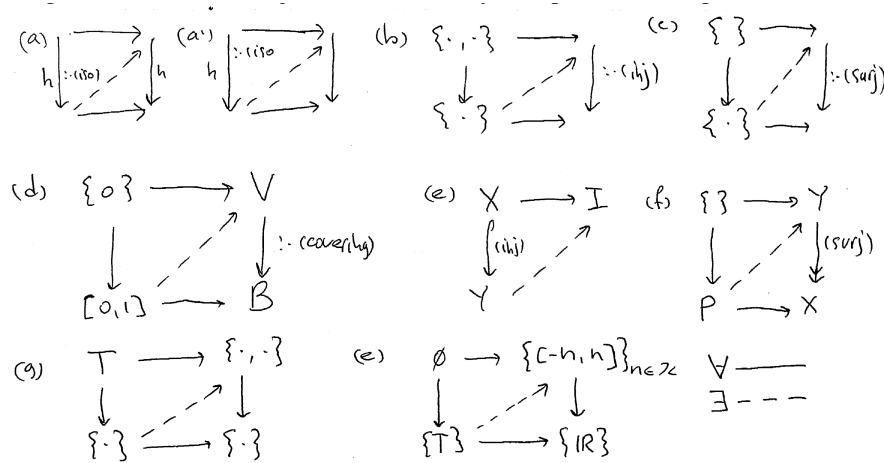 (a) h :·(iso) h (a') h :·(iso (b) {·,·} {·} :·(inj) (c) { } {·} :·(surj)
(d) {0} V [0,1] B :·(covering) (e) X I (inj) Y (f) {} Y P X (surj)
(g) T {·,·} {·} {·} (e) ∅ {[-n,n]}n∈ℤ {T} {IR} ∀ ——
∃ - - -